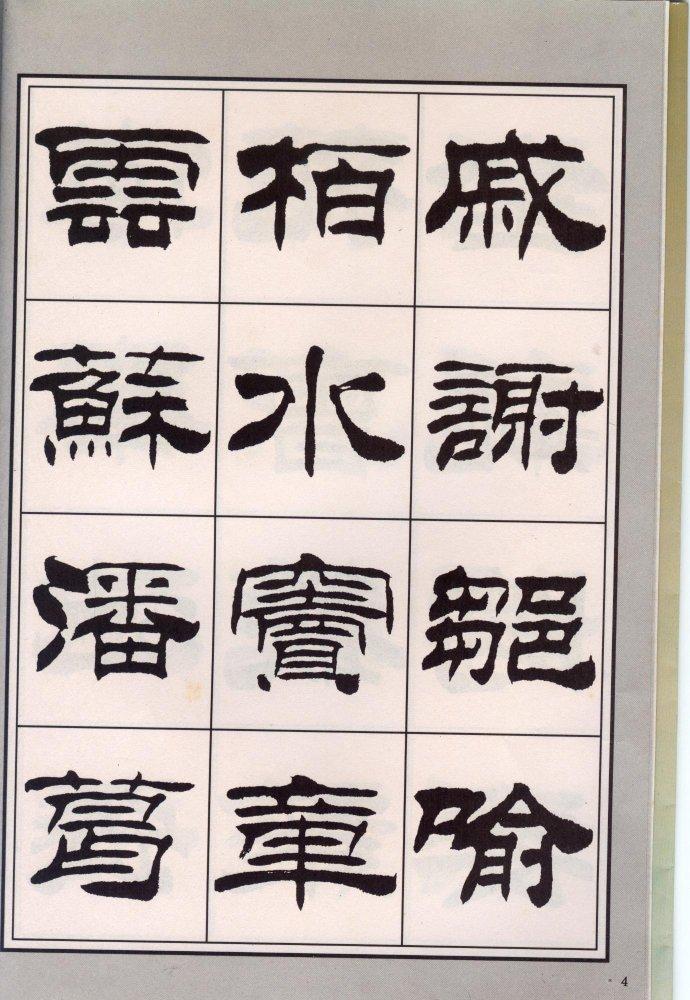 戚謝鄒喻
柏水竇章
雲蘇潘葛
4